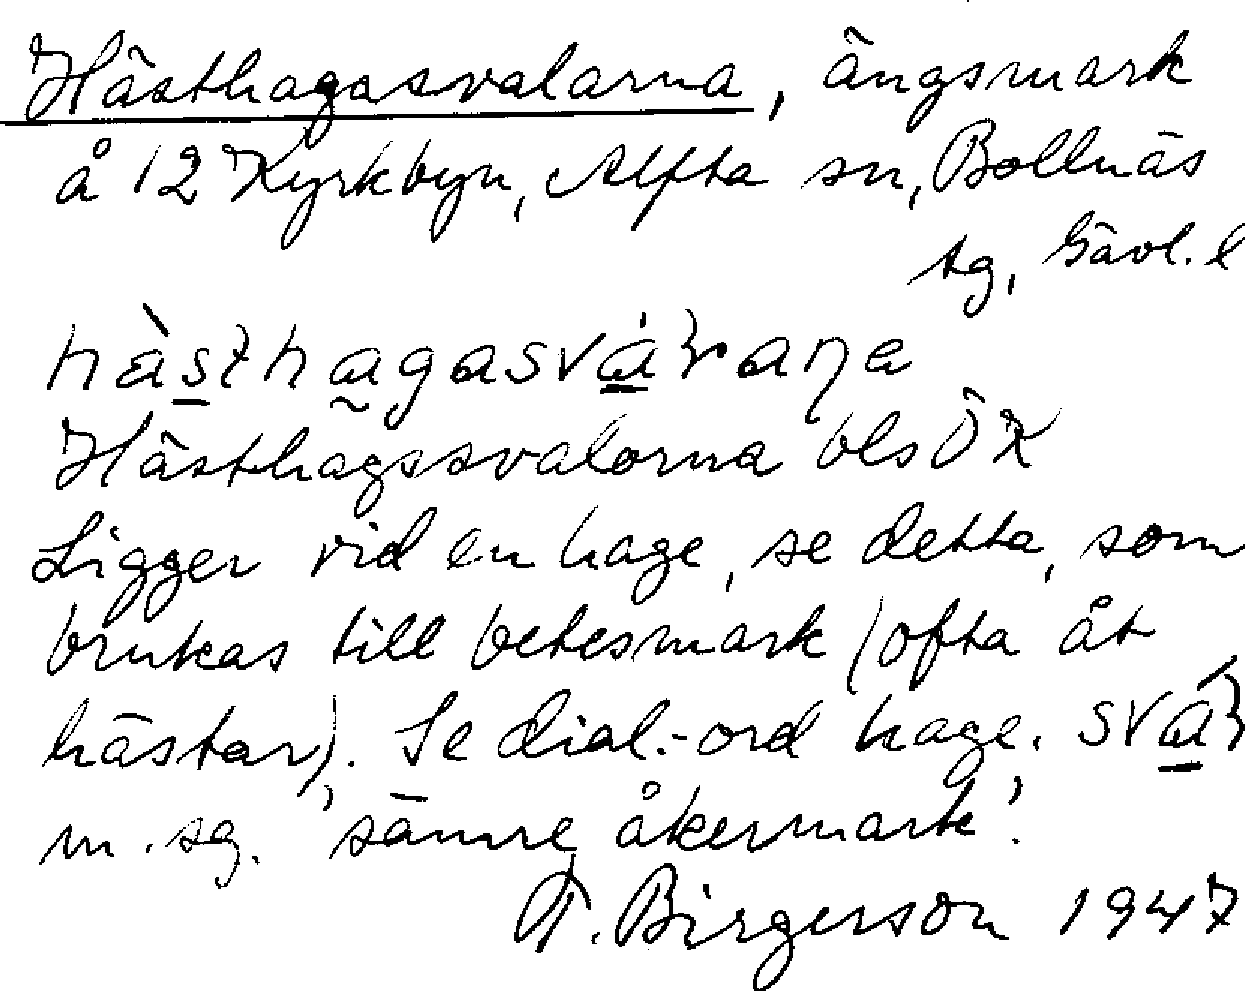 Hästhagasvalarna, ängsmark
å 12 Kyrkbyn, Alfta sn, Bollnäs
tg, Gävl. l
Hästhagssvalorna bls ÖK
Ligger vid en hage, se detta, som
brukas till betesmark (ofta åt
hästar). Se dial.-ord hage.
m. sg. 'sämre åkermark'.
F. Birgerson 1947